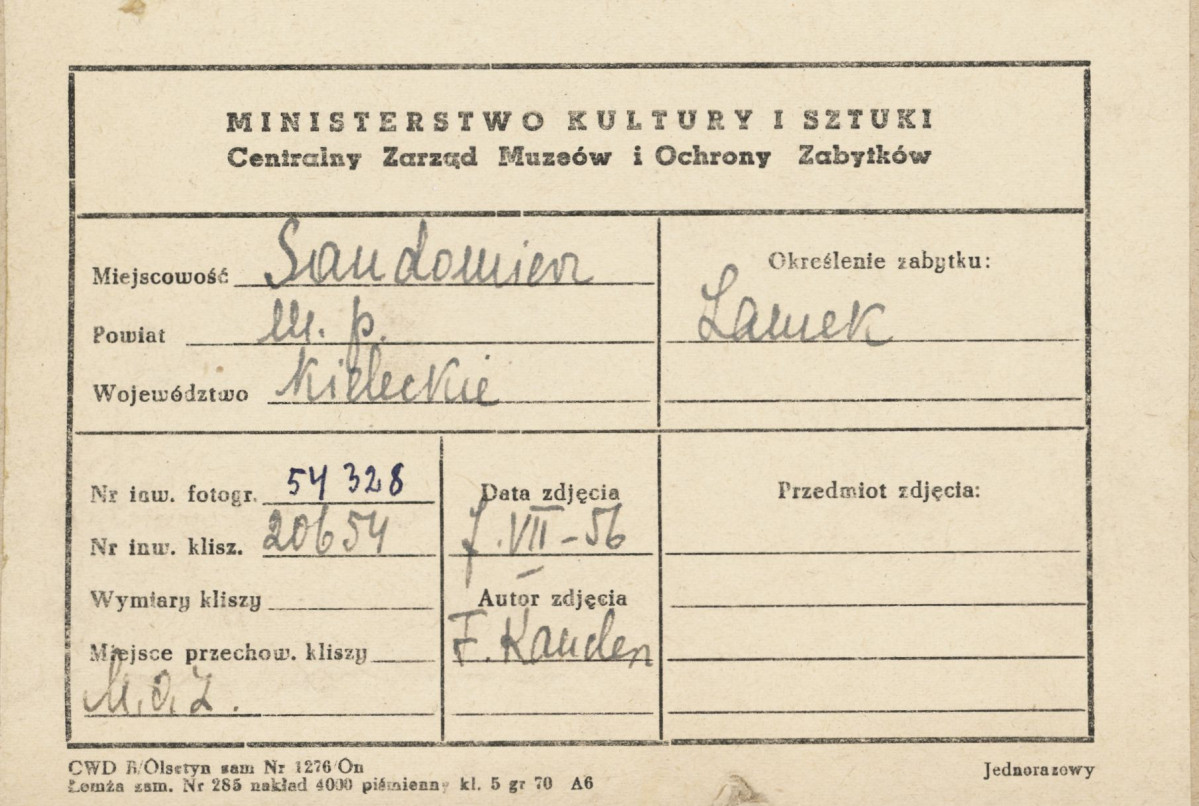 MINISTERSTWO KULTURY I SZTUKI
Centralny Zarząd Muzeów i Ochrony Zabytków
Miejscowość Sandomierz
Powiat m. p.
Województwo kieleckie
Określenie zabytku:
Zamek
Nr inw. fotogr. 54 328
Nr inw. klisz. 20654
Wymiary kliszy
Miejsce przechow. kliszy
M.O.Z.
Data zdjęcia
7.VII-56
Autor zdjęcia
F. Kanclerz
Przedmiot zdjęcia:
CWD R/Olsztyn zam Nr 1276/On
Łomża zam. Nr 285 nakład 4000 piśmienny kl. 5 gr 70 A6
Jednorazowy